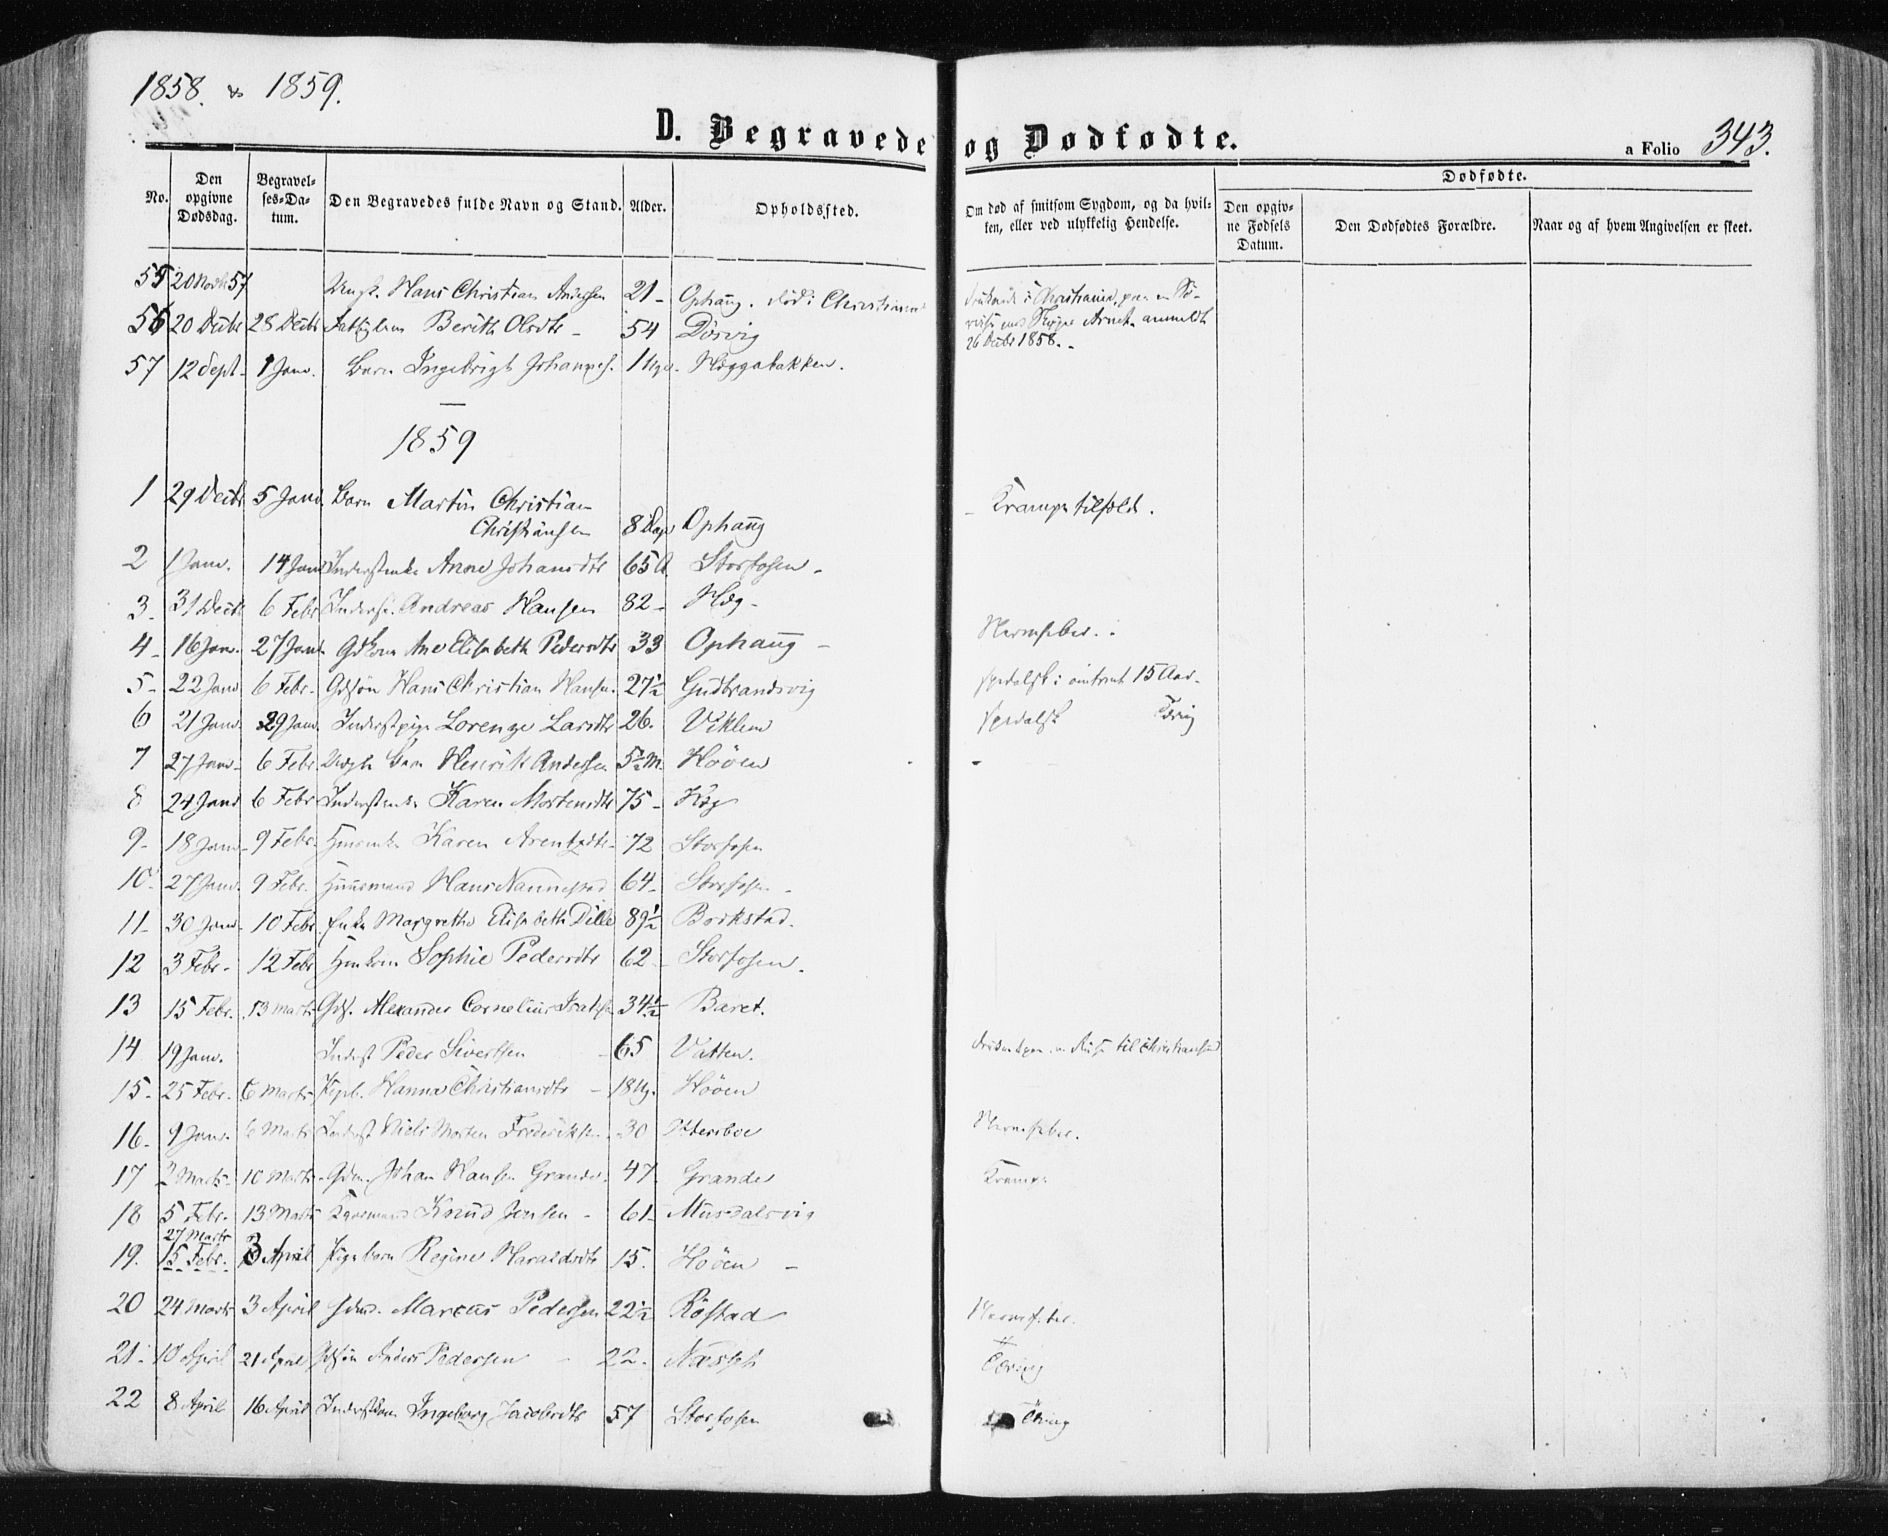 1858. & 1859.
D. Begravede og Dødfødte.
a Folio 343.
No.
Den opgivne Dødsdag.
Begravelses-Datum.
Den Begravedes fulde Navn og Stand.
Alder.
Opholdssted.
Om død af smitsom Sygdom, og da hvilken, eller ved ulykkelig Hendelse.
Dødfødte.
Den opgivne Fødsels Datum.
Den Dødfødtes Forældre.
Naar og af hvem Angivelsen er skeet.
55 20 Novb 57 Ungk. Hans Christian Andersen 21 - Ophaug. død i Christiansund
56 20 Decbr 28 Decbr Berith Olsdtr - 54 Dörvig
26 Decbr 1858. -
57 12 Sept. 1 Janv. Barn Ingebrigt Johannes. 1 Uge. Hoggabakken.
1859
1 29 Decbr 5 Janv Barn Martin Christian
Christiansen 8 Dage Ophaug Krampetilfælde.
2 1 Janv. 14 Janv Inderstenke Anne Johansdtr 65 A Storfosen -
3. 31 Decb 6 Febr Inderst. Andreas Hansen 82 - Høg -
4 - 16 Janv. 27 Janv Gdkone Ane Elisabeth Pedersdtr 33 Ophaug - Nervefeber.
5 - 22 Janv 6 Febr. Gdsøn Hans Christian Hansen. 27½ Gudbrandsvig spedalsk i omtrent 15 Aar.
6 21 Janv. 29 Janv. Inderstpige Lorense Larsdtr 26. Viklem spedalsk Tæring
7 27 Janv. 6 Febr. Uægte Barn Henrik Andersen 5½ M. Hööen
8 24 Janv 6 Febr Inderstenke Karen Mortensdtr 75 - Høg
9 - 18 Janv. 9 Febr. Karen Arentzdtr. 72 Storfosen
10. 27 Janv. 9 Febr. Huusmand Hans Nannestad 64 - Storfosen -
11 - 30 Janv. 10 Febr. Enke Margrethe Elisabeth Dille 89½ Borkstad.
12 3 Febr. 12 Febr Hmkone Sophie Pedersdtr 62 - Storfosen.
13 15 Febr. 13 Marts Gds. Alexander Cornelius Isaksen 34½ Baret.
14 19 Janv. Inderst Peder Sivertsen - 65 Vatten. til Christiansund
15 - 25 Febr. 6 Marts Pigeb. Hanna Christiansdtr - 18 Ug. Hööen
16 - 9 Janv. 6 Marts Inderst Niels Morten Frederiksen 30 Nervefeber.
17 2 Marts 10 Marts Gdm. Johan Hansen Grande. 47 Grande Krampe
18 5 Febr. 13 Marts Knud Jensen - 61 - Musdalsvig
27 Marts
19. 15 Febr. 3 April Pigebarn Regine Haraldsdtr 15. Hööen -
20 24 Marts 3 April Marcus Pedersen 22½ Röstad Nervefeber.
21 - 10 April 21 April Gdsøn Anders Pedersen - 22. Næsset Tæring
22 8 April 16 April Inderstkone Ingeborg Jacobsdtr 57 Storfosen Tæring